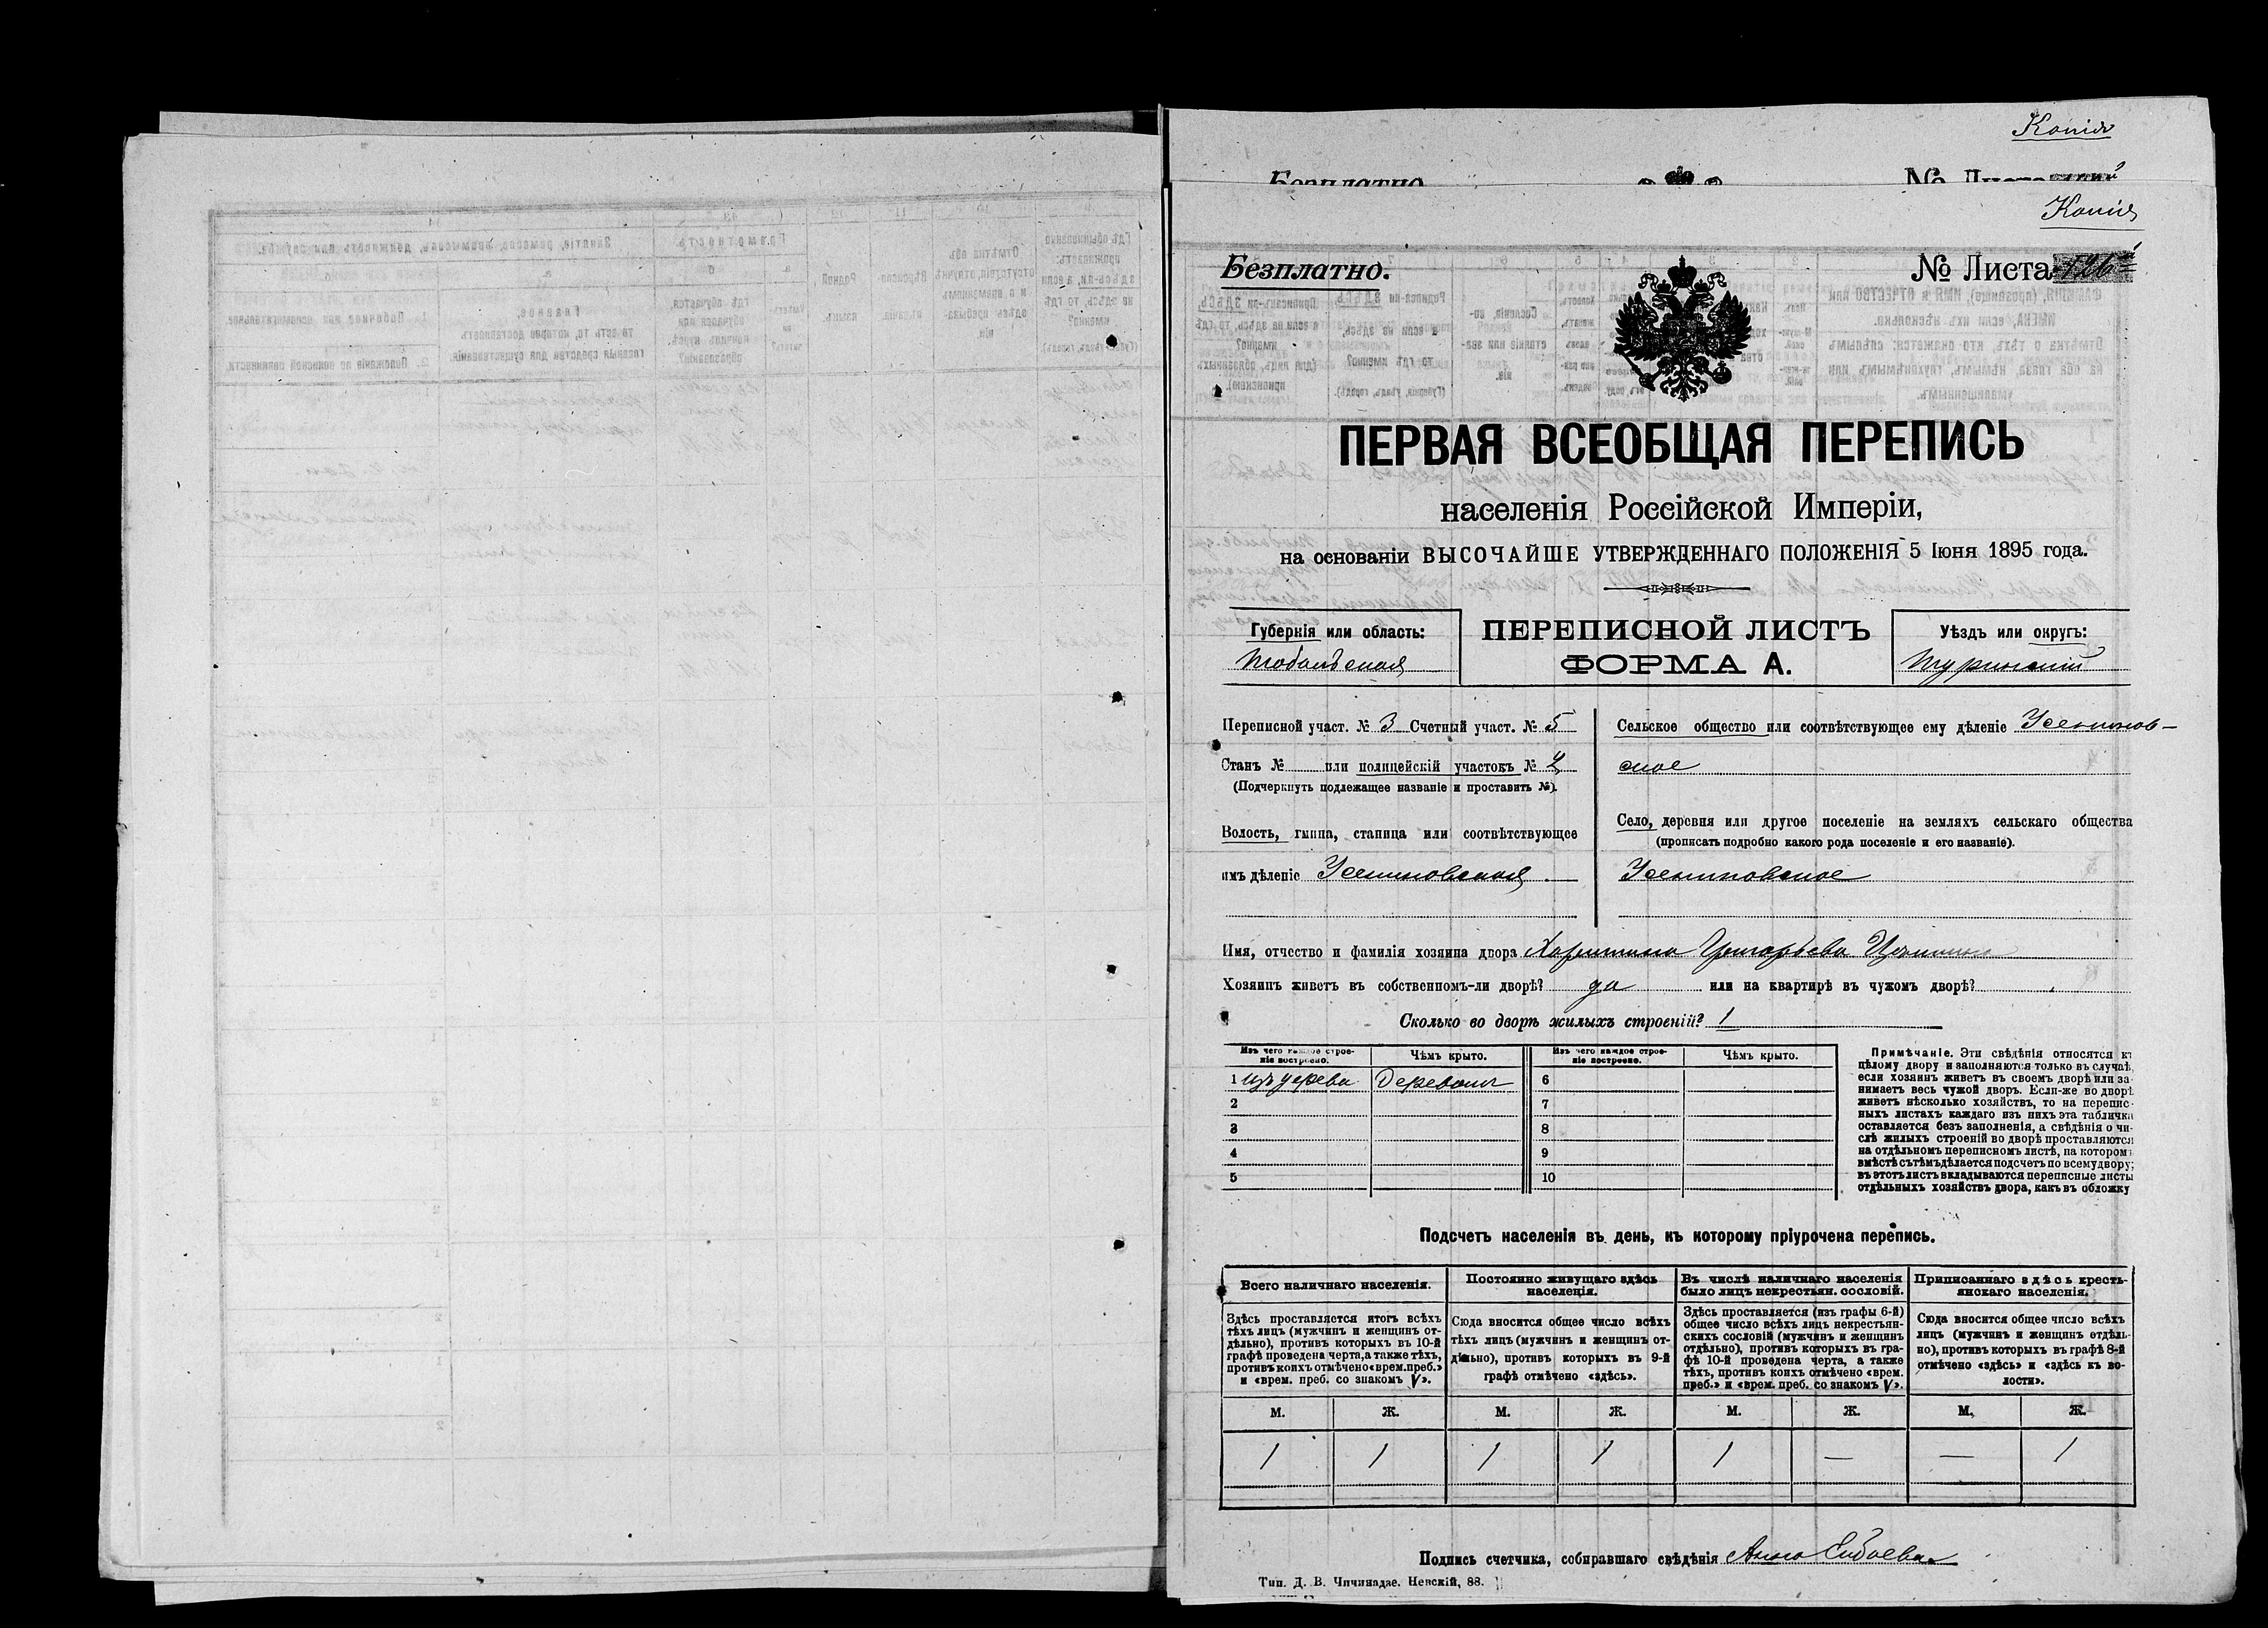 Копія
Безплатно.
№ Листа
Копія
Безплатно.
№ Листа 126й
ПЕРВАЯ ВСЕОБЩАЯ ПЕРЕПИСЬ
населенія Россійской Имперіи,
на основаніи ВЫСОЧАЙШЕ УТВЕРЖДЕННАГО ПОЛОЖЕНІЯ 5 Іюня 1895 года.
Губернія или область:
Тобольская
ПЕРЕПИСНОЙ ЛИСТЪ
ФОРМА А.
Уѣздъ или округъ:
Туринскій
Переписной участ. № 3 Счетный участ. № 5
Станъ № или полицейскій участокъ № 2
(Подчеркнуть подлежащее названіе и проставить №).
Волость, гмина, станица или соотвѣтствующее
имъ дѣленіе Усениновская
Сельское общество или соотвѣтствующее ему дѣленіе Усенинов-
ское
Село, деревня или другое поселеніе на земляхъ сельскаго общества
(прописать подробно какого рода поселеніе и его названіе).
Усениновское
Имя, отчество и фамилія хозяина двора Харитина Григорьева
Хозяинъ живетъ въ собственномъ-ли дворѣ? да или на квартирѣ въ чужомъ дворѣ?
Сколько во дворѣ жилыхъ строеній? 1
Изъ чего каждое строе-
ніе построено.
Чѣмъ крыто.
Изъ чего каждое строе-
ніе построено.
Чѣмъ крыто.
1 изъ дерева Деревомъ 6
2 7
3 8
4 9
5 10
Примѣчаніе. Эти свѣдѣнія относятся къ
цѣлому двору и заполняются только въ случаѣ,
если хозяинъ живетъ въ своемъ дворѣ или за-
нимаетъ весь чужой дворъ. Если-же во дворѣ
живетъ нѣсколько хозяйствъ, то на перепис-
ныхъ листахъ каждаго изъ нихъ эта табличка
оставляется безъ заполненія, а свѣдѣнія о чи-
слѣ жилыхъ строеній во дворѣ проставляются
на отдѣльномъ переписномъ листѣ, на которомъ
вмѣстѣ съ тѣмъ дѣлается подсчетъ по всему двору;
въ этотъ листъ вкладываются переписные листы
отдѣльныхъ хозяйствъ двора, какъ въ обложку
Подсчетъ населенія въ день, къ которому пріурочена перепись.
Всего наличнаго населенія.
Здѣсь проставляется итогъ всѣхъ
тѣхъ лицъ (мужчинъ и женщинъ от-
дѣльно), противъ которыхъ въ 10-й
графѣ проведена черта, а также тѣхъ,
противъ коихъ отмѣчено «врем. преб.»
и «врем. преб. со знакомъ V».
Постоянно живущаго здѣсь
населенія.
Сюда вносится общее число всѣхъ
тѣхъ лицъ (мужчинъ и женщинъ от-
дѣльно), противъ которыхъ въ 9-й
графѣ отмѣчено «здѣсь».
Въ числѣ наличнаго населенія
было лицъ некрестьян. сословій.
Здѣсь проставляется (изъ графы 6-й)
общее число всѣхъ лицъ некрестьян-
скихъ сословій (мужчинъ и женщинъ
отдѣльно), противъ которыхъ въ гра-
фѣ 10-й проведена черта, а также
тѣхъ, противъ коихъ отмѣчено «врем.
преб.» и «врем. преб. со знакомъ V».
Приписаннаго здѣсь кресть-
янскаго населенія.
Сюда вносится общее число всѣхъ
лицъ (мужчинъ и женщинъ отдѣль-
но), противъ которыхъ въ графѣ 8-й
отмѣчено «здѣсь» и «здѣсь къ во-
лости».
М. Ж. М. Ж. М. Ж. М. Ж.
1 1 1 1 1 — — 1
Подпись счетчика, собиравшаго свѣдѣнія Анна
Тип. Д. В. Чичинадзе. Невскій, 88.